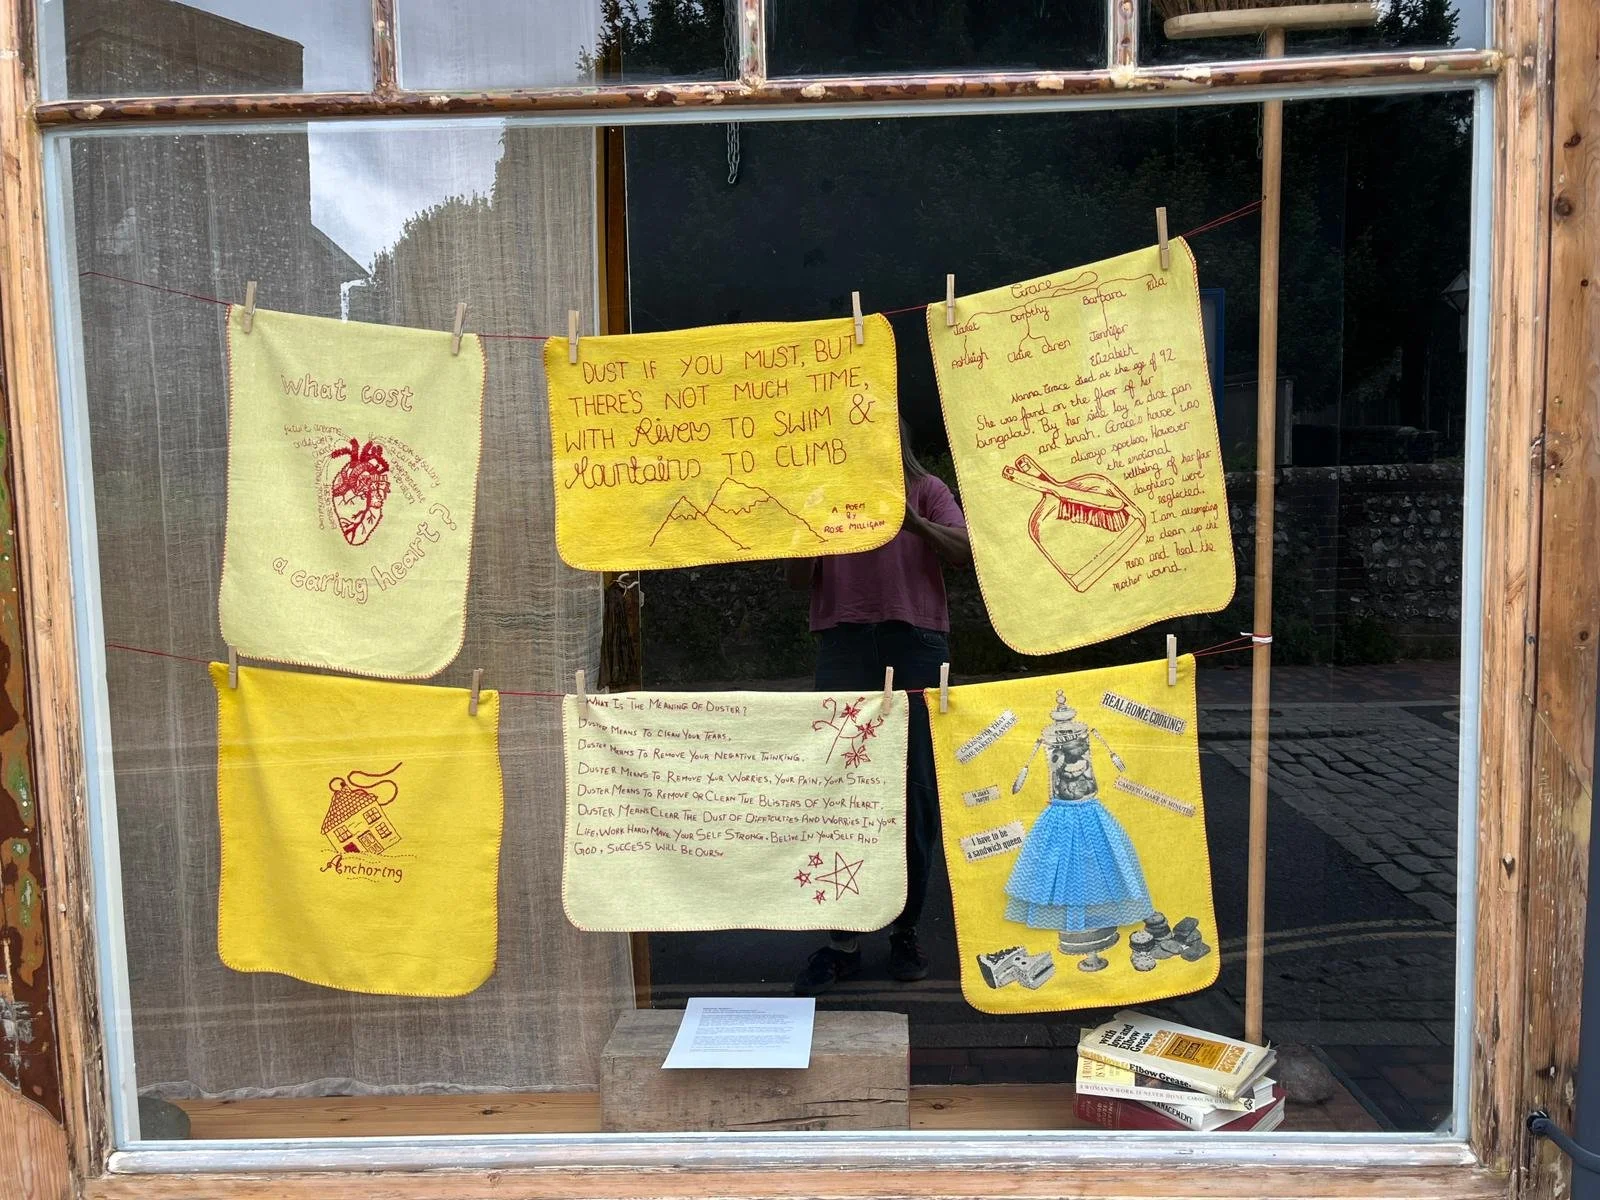 What cost
future dreams
a caring heart?
DUST IF YOU MUST, BUT
THERE'S NOT MUCH TIME,
WITH Rivers TO SWIM &
Mountains TO CLIMB
A POEM
BY
ROSE MILLIGAN
Grace
Janet Dorothy Barbara Rita
Ashleigh Claire Karen Jennifer
Elizabeth
Nanna Grace died at the age of 92
She was found on the floor of her
bungalow. By her side lay a dust pan
and brush. Grace's house was
always spotless, However
the emotional
wellbeing of her four
daughters were
neglected.
I am attempting
to clean up the
mess and heal the
Mother wound.
Anchoring
WHAT IS THE MEANING OF DUSTER?
DUSTER MEANS TO CLEAN YOUR TEARS.
DUSTER MEANS TO REMOVE YOUR NEGATIVE THINKING.
DUSTER MEANS TO REMOVE YOUR WORRIES, YOUR PAIN, YOUR STRESS.
DUSTER MEANS TO REMOVE OR CLEAN THE BLISTERS OF YOUR HEART.
DUSTER MEANS CLEAR THE DUST OF DIFFICULTIES AND WORRIES IN YOUR
LIFE, WORK HARD, MAKE YOUR SELF STRONG. BELIVE IN YOURSELF AND
GOD, SUCCESS WILL BE OURS.
CAKES WITH THAT
HOME BAKED FLAVOUR
REAL HOME COOKING!
CAKES TO MAKE IN MINUTES
I have to be
a sandwich queen
with
love and
Elbow
Grease
Elbow Grease.
A WOMAN'S WORK IS NEVER DONE CAROLINE DAVIDSON
MANAGEMENT